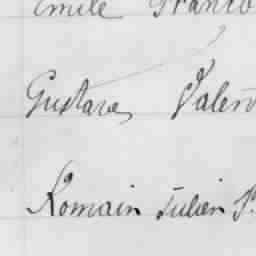 Emile Franco
Gustave Valen
Romain Julien P.